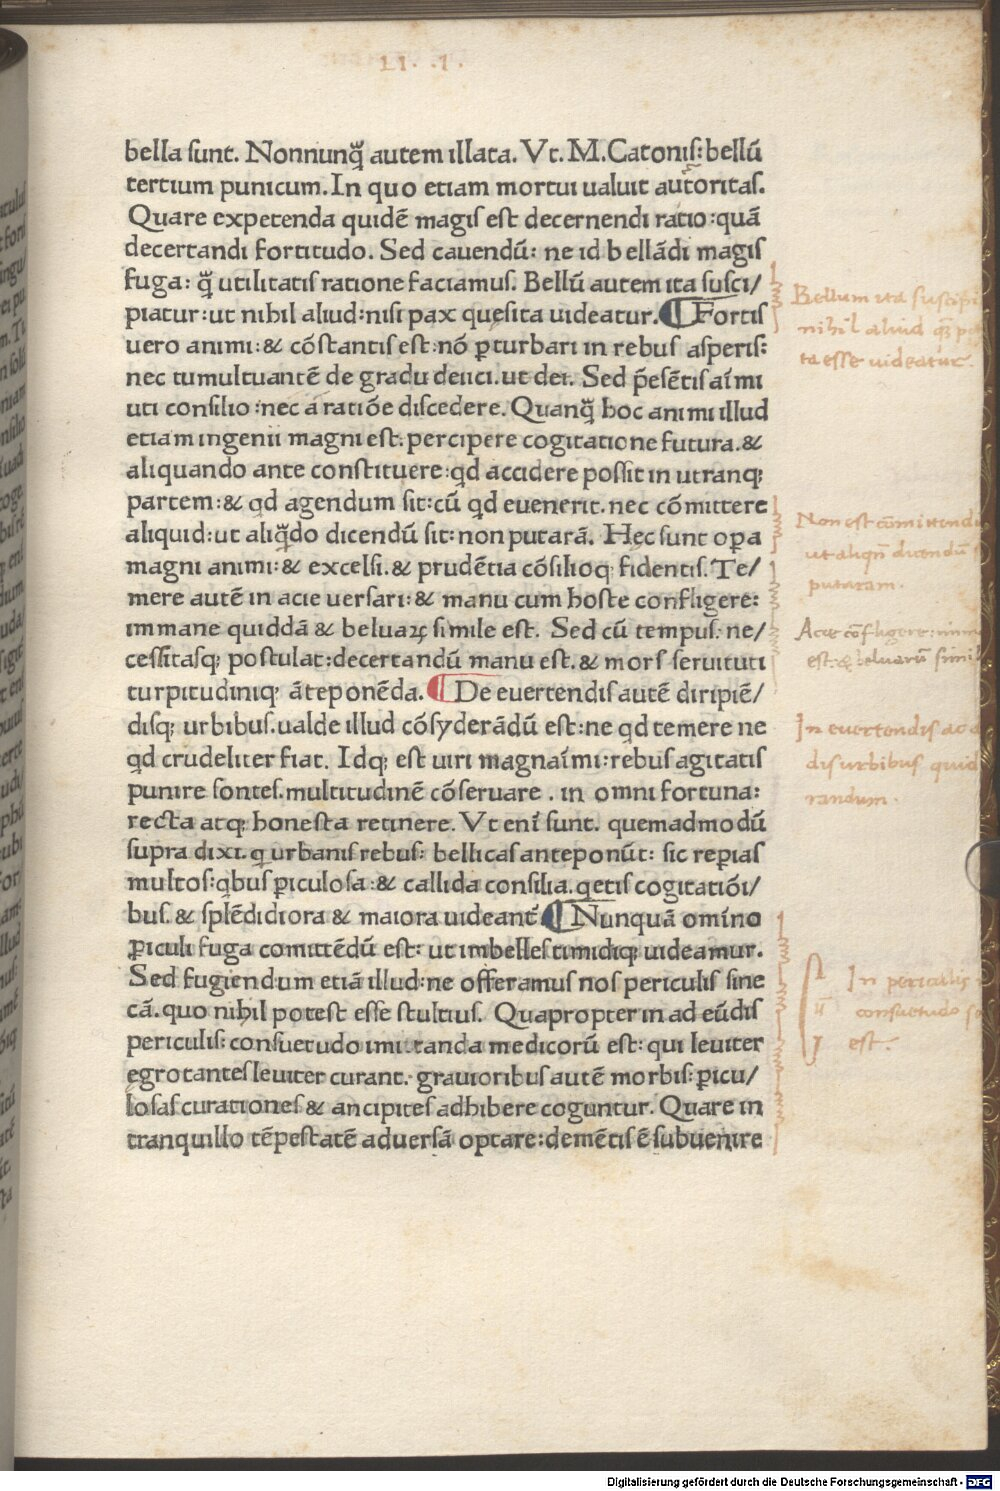 LI. .I.
bella sunt. Nonnunq̃ autem illata. Vt. M. Catonis: bellū
tertium punicum. In quo etiam mortui ualuit autoritas.
Quare expetenda quidē magis est decernendi ratio: quā
decertandi fortitudo. Sed cauendū: ne id bellādi magis
fuga: q̃ utilitatis ratione faciamus. Bellū autem ita susci/
piatur: ut nihil aliud: nisi pax quesita uideatur. ¶ Fortis
uero animi: & cōstantis est: nō ꝑturbari in rebus asperis:
nec tumultuantē de gradu deiici. ut dei. Sed p̄sētis aīmi
uti consilio: nec a ratiōe discedere. Quanq̃ hoc animi illud
etiam ingenii magni est. percipere cogitatione futura. &
aliquando ante constituere: qd accidere possit in utranq;
partem: & qd agendum sit: cū qd euenerit. nec cōmittere
aliquid: ut aliq̃do dicendū sit: non putarā. Hęc sunt oꝑa
magni animi: & excelsi. & prudētia cōsilioq; fidentis. Te/
mere autē in acie uersari: & manu cum hoste confligere:
immane quiddā & beluaꝝ simile est. Sed cū tempus. ne/
cessitasq; postulat: decertandū manu est. & mors seruituti
turpitudiniq; āteponēda. ¶ De euertendis autē diripiē/
disq; urbibus. ualde illud cōsyderādū est: ne qd temere ne
qd crudeliter fiat. Idq; est uiri magnaīmi: rebus agitatis
punire sontes. multitudinē cōseruare. in omni fortuna:
recta atq; honesta retinere. Vt enī sunt. quemadmodū
supra dixi. q urbanis rebus: bellicas anteponūt: sic reꝑias
multos: qbus ꝑiculosa: & callida consilia. qetis cogitatiōi/
bus. & splēdidiora & maiora uideant᷑ ¶ Nunquā omīno
ꝑiculi fuga comittēdū est: ut imbelles timidiq; uideamur.
Sed fugiendum etiā illud: ne offeramus nos periculis sine
cā. quo nihil potest esse stultius. Quapropter in ad eūdis
periculis: consuetudo imitanda medicorū est: qui leuiter
egrotantes leuiter curant. grauioribus autē morbis: ꝑicu/
losas curationes & ancipites adhibere coguntur. Quare in
tranquillo tēpestatē aduersā optare: demētis ē subuenire
Bellum ita suscipi
nihil aliud q̃ p
ta esse uideatur.
Non est cōmittendū
ut aliqñ dicendū
putaram.
Acie cōfligere: imm
est & beluarum simil
In euertendis ac d
dis urbibus quid
randum.
In periculis
consuetudo
est.
Digitalisierung gefördert durch die Deutsche Forschungsgemeinschaft - DFG